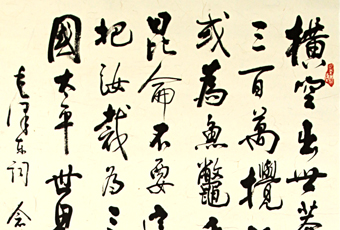 橫空出世莽
三百萬攪
或為魚鱉
昆侖不要這
把汝裁為三
國太平世界
毛澤東詞 念